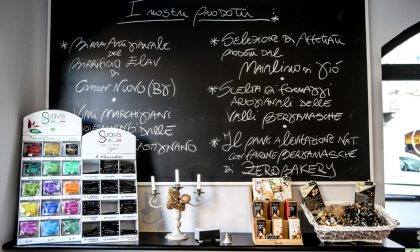 I nostri prodotti :
* Birra Artigianale
del
Birrificio Elav
di
Comun Nuovo (BG)
Vini Marchigiani
* Selezione di Affettati
prodotti dal
Maialino di Giò
* Scelta di Formaggi
Artigianali delle
Valli Bergamasche
* Il pane a lievitazione nat.
con farine Bergamasche
di Zerobakery
Suavis
Suavis